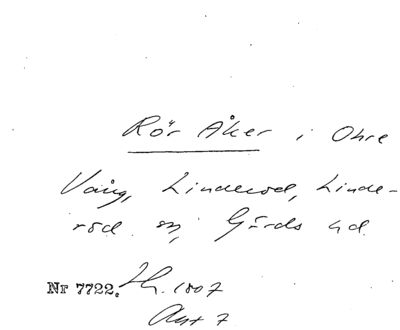 Rör Åker i Ohre
Vång, Linderod, Linde-
röd sn, Gärds hd.
Nr 7722. 1807
Akt 7